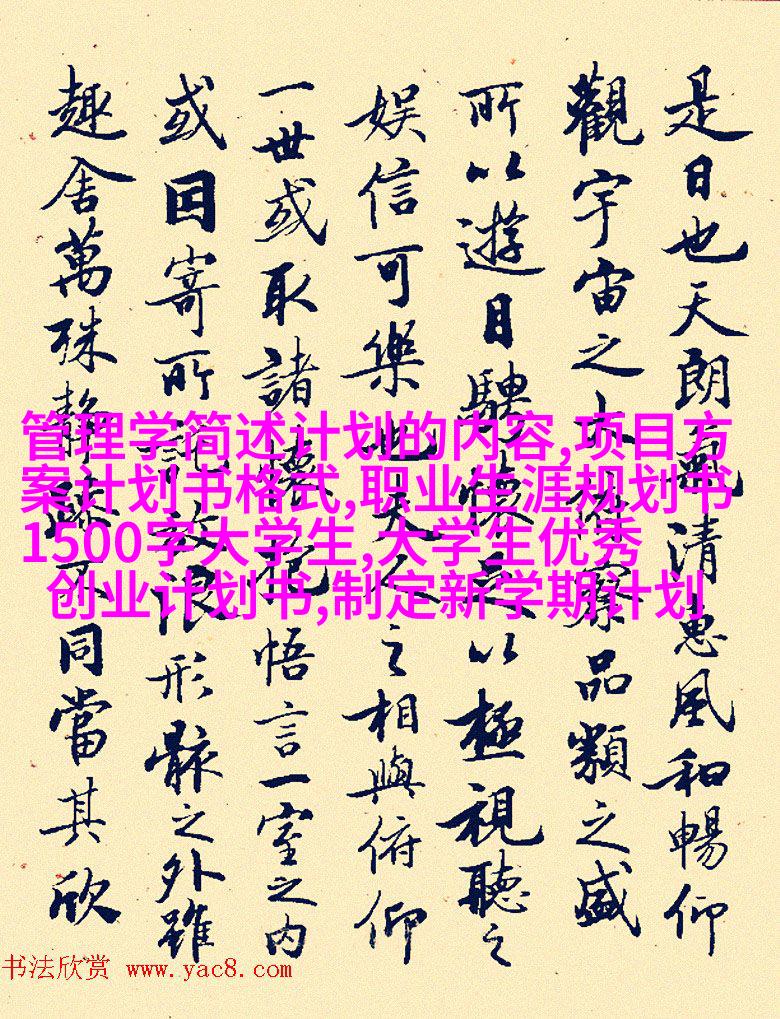 是日也天朗氣清惠風和暢仰
觀宇宙之大俯察品類之盛
所以遊目騁懷足以極視聽之
娛信可樂也夫人之相與俯仰
一世或取諸懷抱悟言一室之內
或因寄所託放浪形骸之外雖
趣舍萬殊靜躁不同當其欣
管理学简述计划的内容,项目方
案计划书格式,职业生涯规划书
1500字大学生,大学生优秀
创业计划书,制定新学期计划
书法欣赏 www.yac8.com